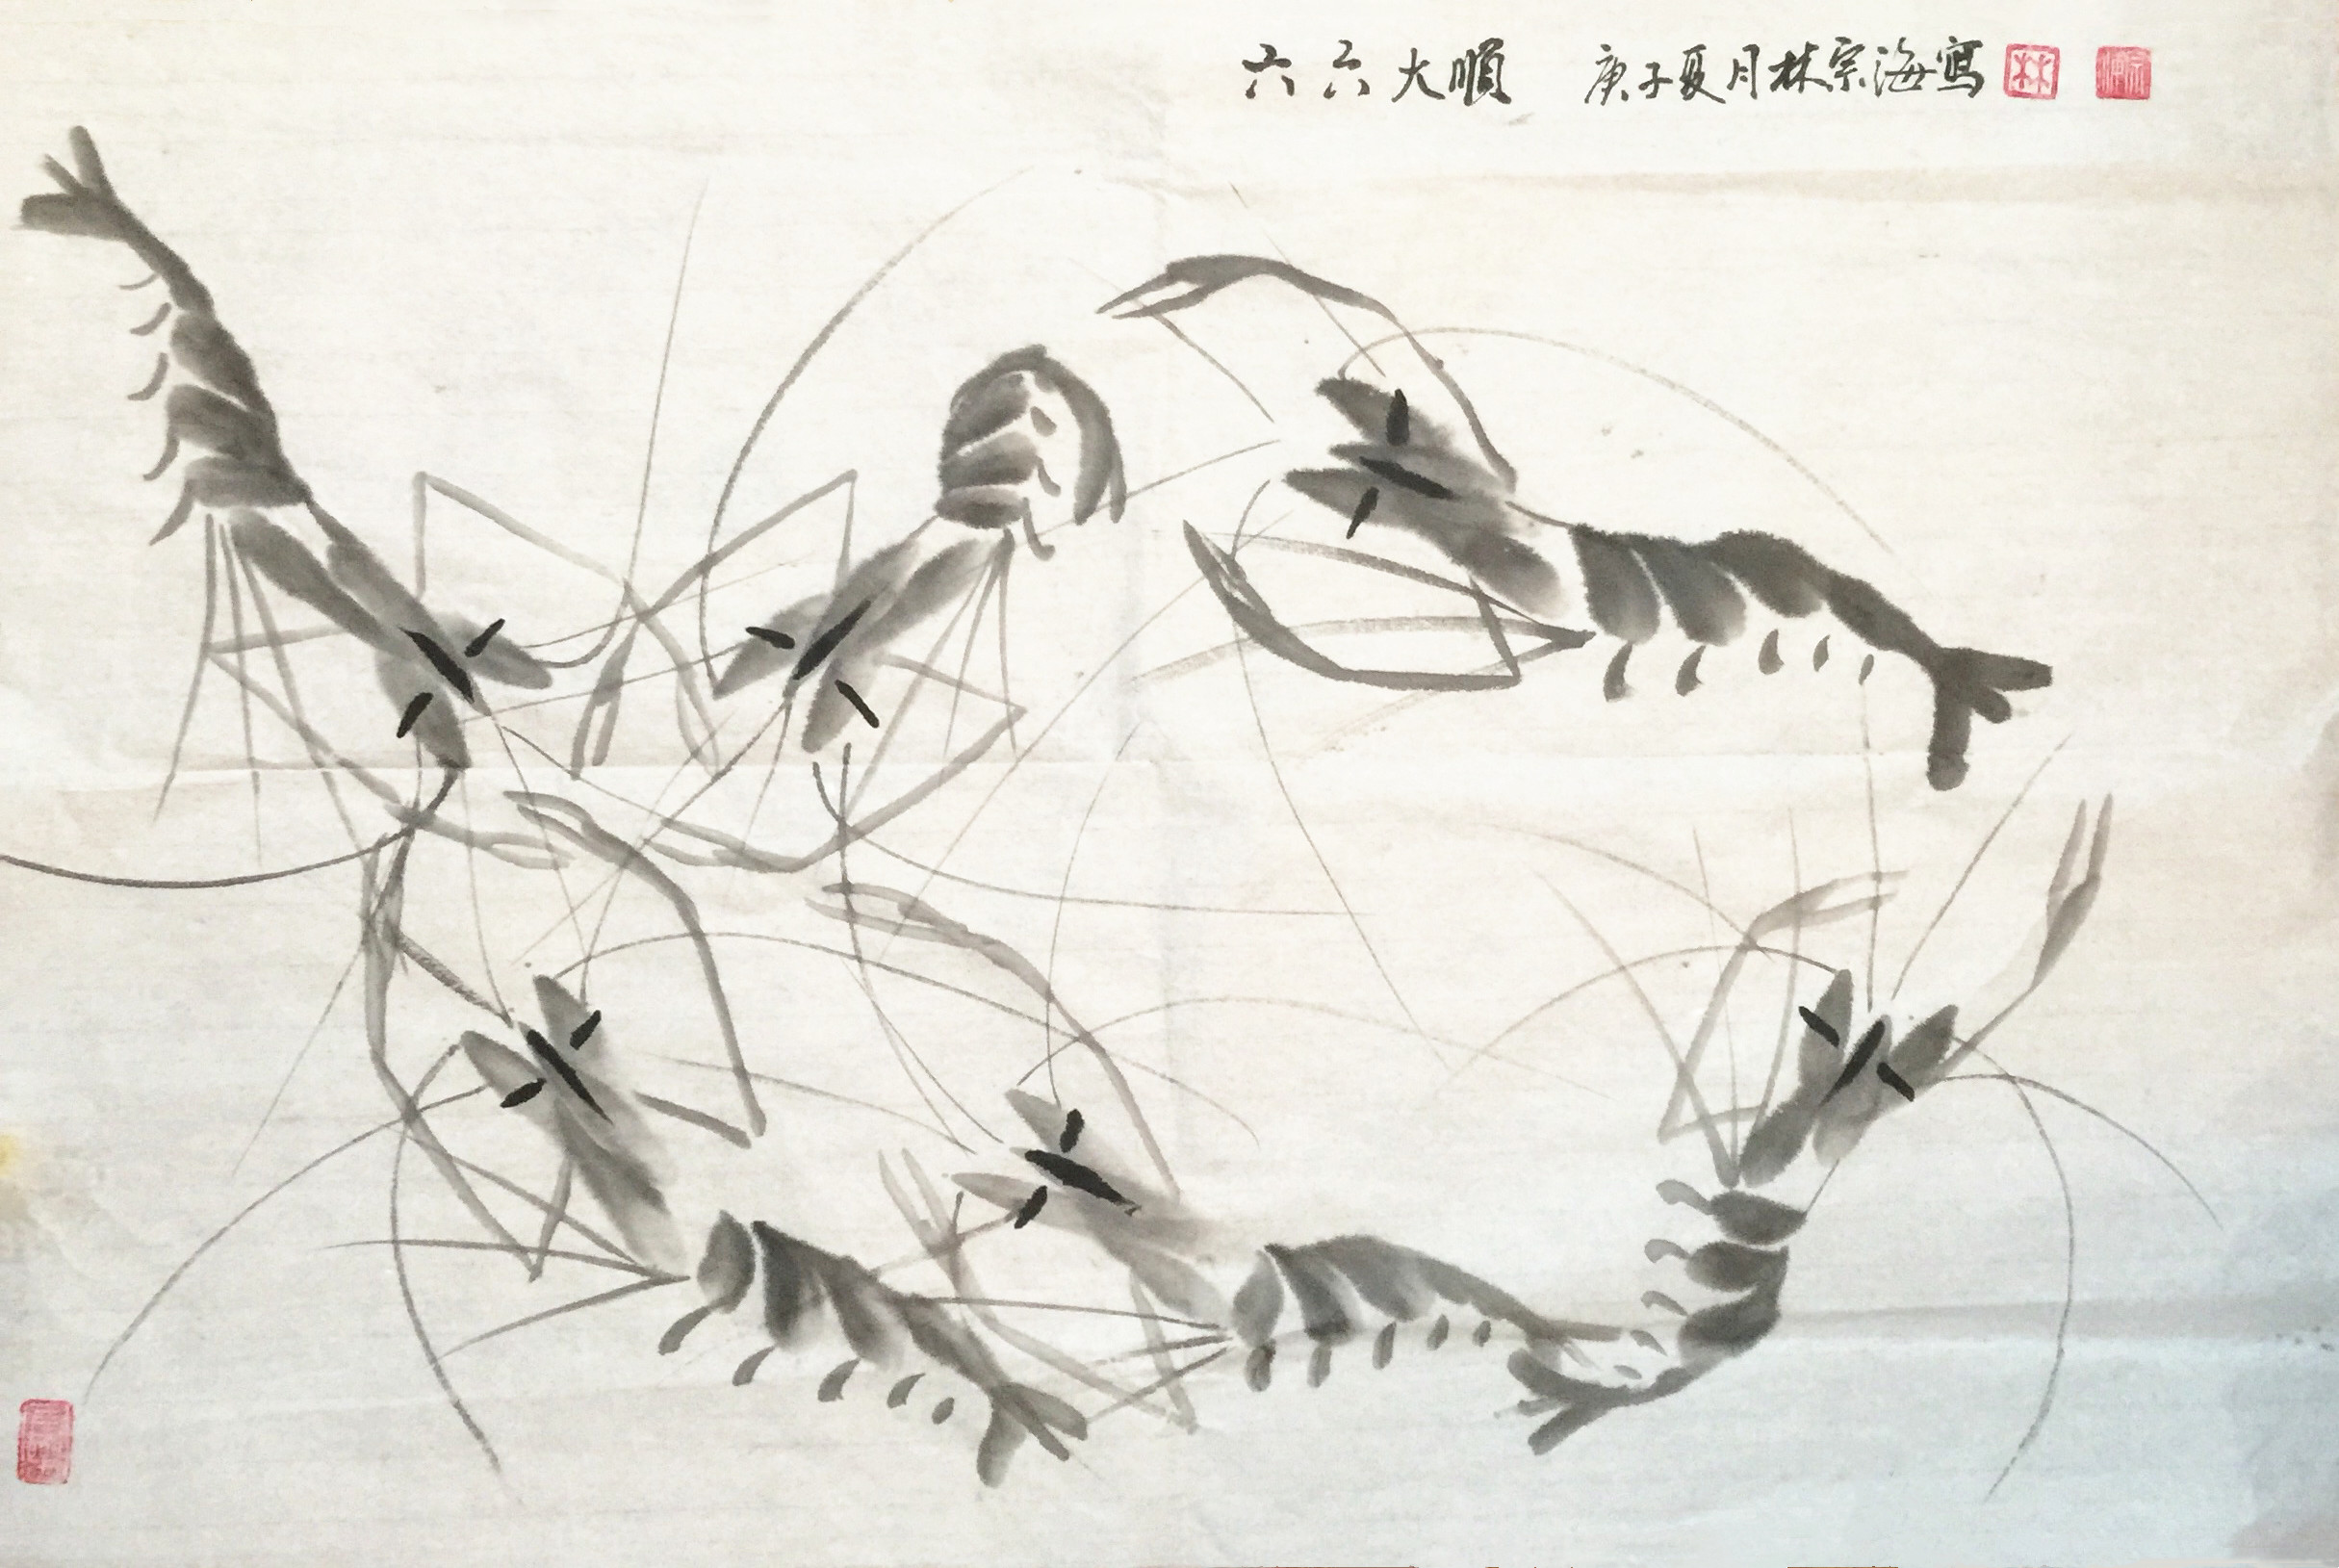 六六大順 庚子夏月林宗海寫
林
宗海